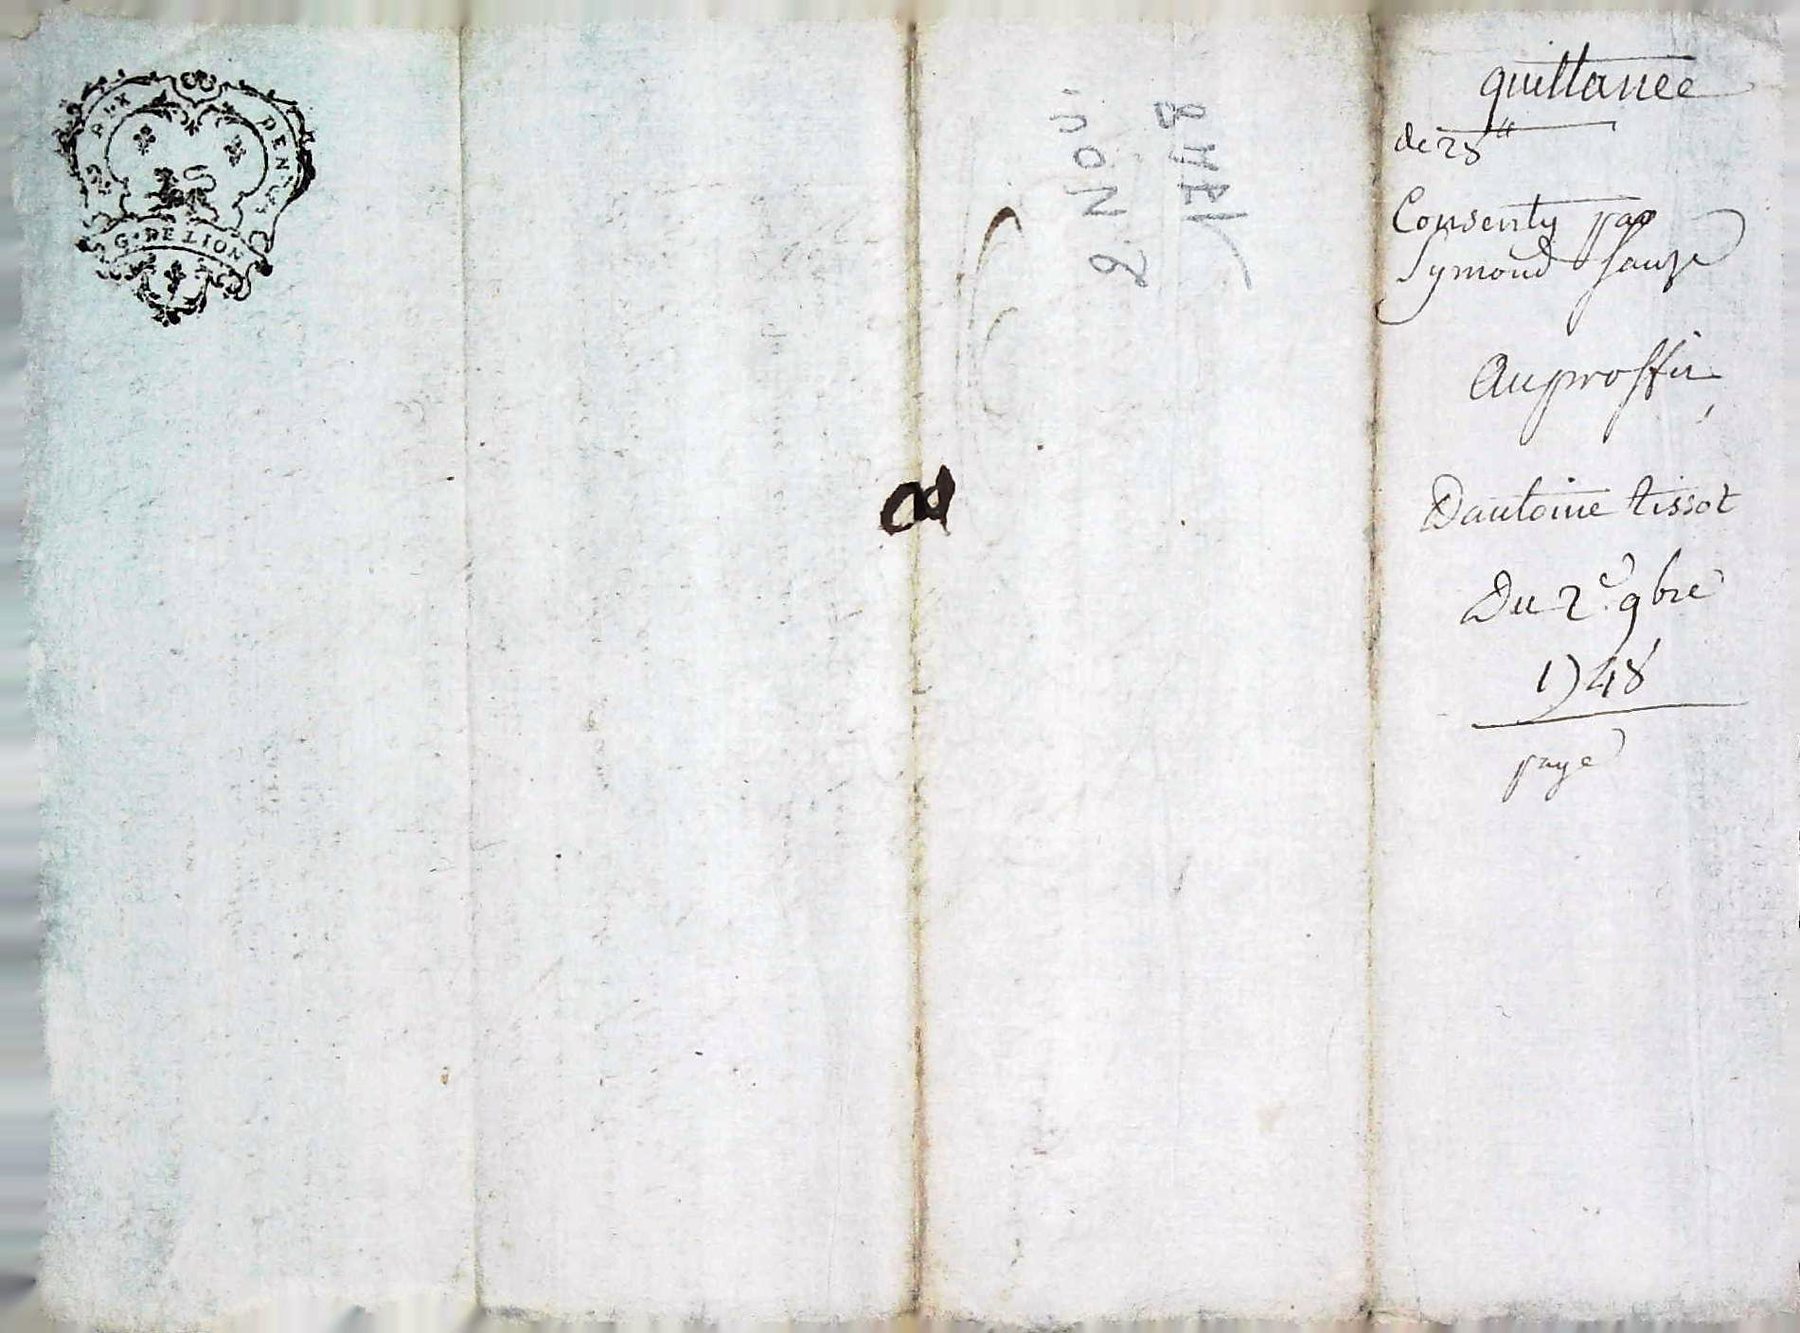 AUX
DEN. S
G. DE LION
8 NOV.
1748
quittance
de 28ᵗᵗ
Consenty par
Symond
Au proffit
Dantoine tissot
Du 2ᵉ 9bre
1748
payé